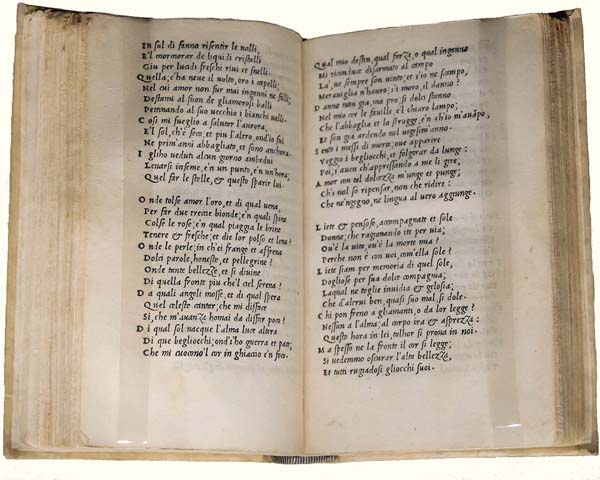 In sul di fanno risentir le valli,
E'l mormorar de liquidi cristalli
Giu per lucidi freschi rivi et snelli.
Quella, c'ha neve il volto, oro i capelli;
Nel cui amor non fur mai inganni ne falli;
Destami al suon de gliamorosi balli
Pettinando al suo vecchio i bianchi velli.
Cosi mi sveglio a salutar l'aurora,
E'l sol, ch'è seco, et piu l'altro, ond'io fui
Ne prim'anni abbagliato, et sono anchora.
I gliho veduti alcun giorno ambedui
Levarsi inseme, e'n un punto, e'n un'hora;
Quel far le stelle, & questo sparir lui.
Onde tolse amor l'oro, et di qual vena,
Per far due treccie bionde; e'n quali spine
Colse le rose; e'n qual piaggia le brine
Tenere & fresche; et die lor polso et lena?
Onde le perle; in ch'ei frange et affrena
Dolci parole, honeste, et pellegrine?
Onde tante bellezze, et si divine
Di quella fronte piu che'l ciel serena?
Da quali angeli mosse, et di qual spera
Quel celeste cantar; che mi disface
Si, che m'avanza homai da disfar poco?
Di qual sol nacque l'alma luce altera
Di que begliocchi; ond'i'ho guerra et pace;
Che mi cuocono'l cor in ghiaccio e'n foco.
Qual mio destin, qual forza, o qual inganno
Mi riconduce disarmato al campo
Là, 've sempre son vinto; et s'io ne scampo,
Meraviglia n'havro; s'i moro, il danno?
Danno non gia, ma pro; si dolci stanno
Nel mio cor le faville e'l chiaro lampo;
Che l'abbaglia et lo strugge, e'n ch'io m'avampo,
Et son gia ardendo nel vigesim'anno.
Sento i messi di morte; ove apparire
Veggio i begliocchi, et folgorar da lunge:
Poi, s'aven ch'appressando a me li gire;
Amor con tal dolcezza m'unge et punge;
Ch'i nol so ripensar, non che ridire:
Che ne'ngegno, ne lingua al vero aggiunge.
Liete & pensose, accompagnate et sole
Donne; che ragionando ite per via;
Ov'è la vita, ov'è la morte mia?
Perche non è con voi, com'ella sole?
Liete siam per memoria di quel sole,
Dogliose per sua dolce compagnia;
Laqual ne toglie invidia & gelosia;
Che d'altrui ben, quasi suo mal, si dole.
Chi pon freno a gliamanti, o da lor legge?
Nessun a l'alma; al corpo ira & asprezza:
Questo hora in lei, talhor si prova in noi.
Ma spesso ne la fronte il cor si legge;
Si vedemmo oscurar l'alta bellezza,
Et tutti rugiadosi gliocchi suoi.